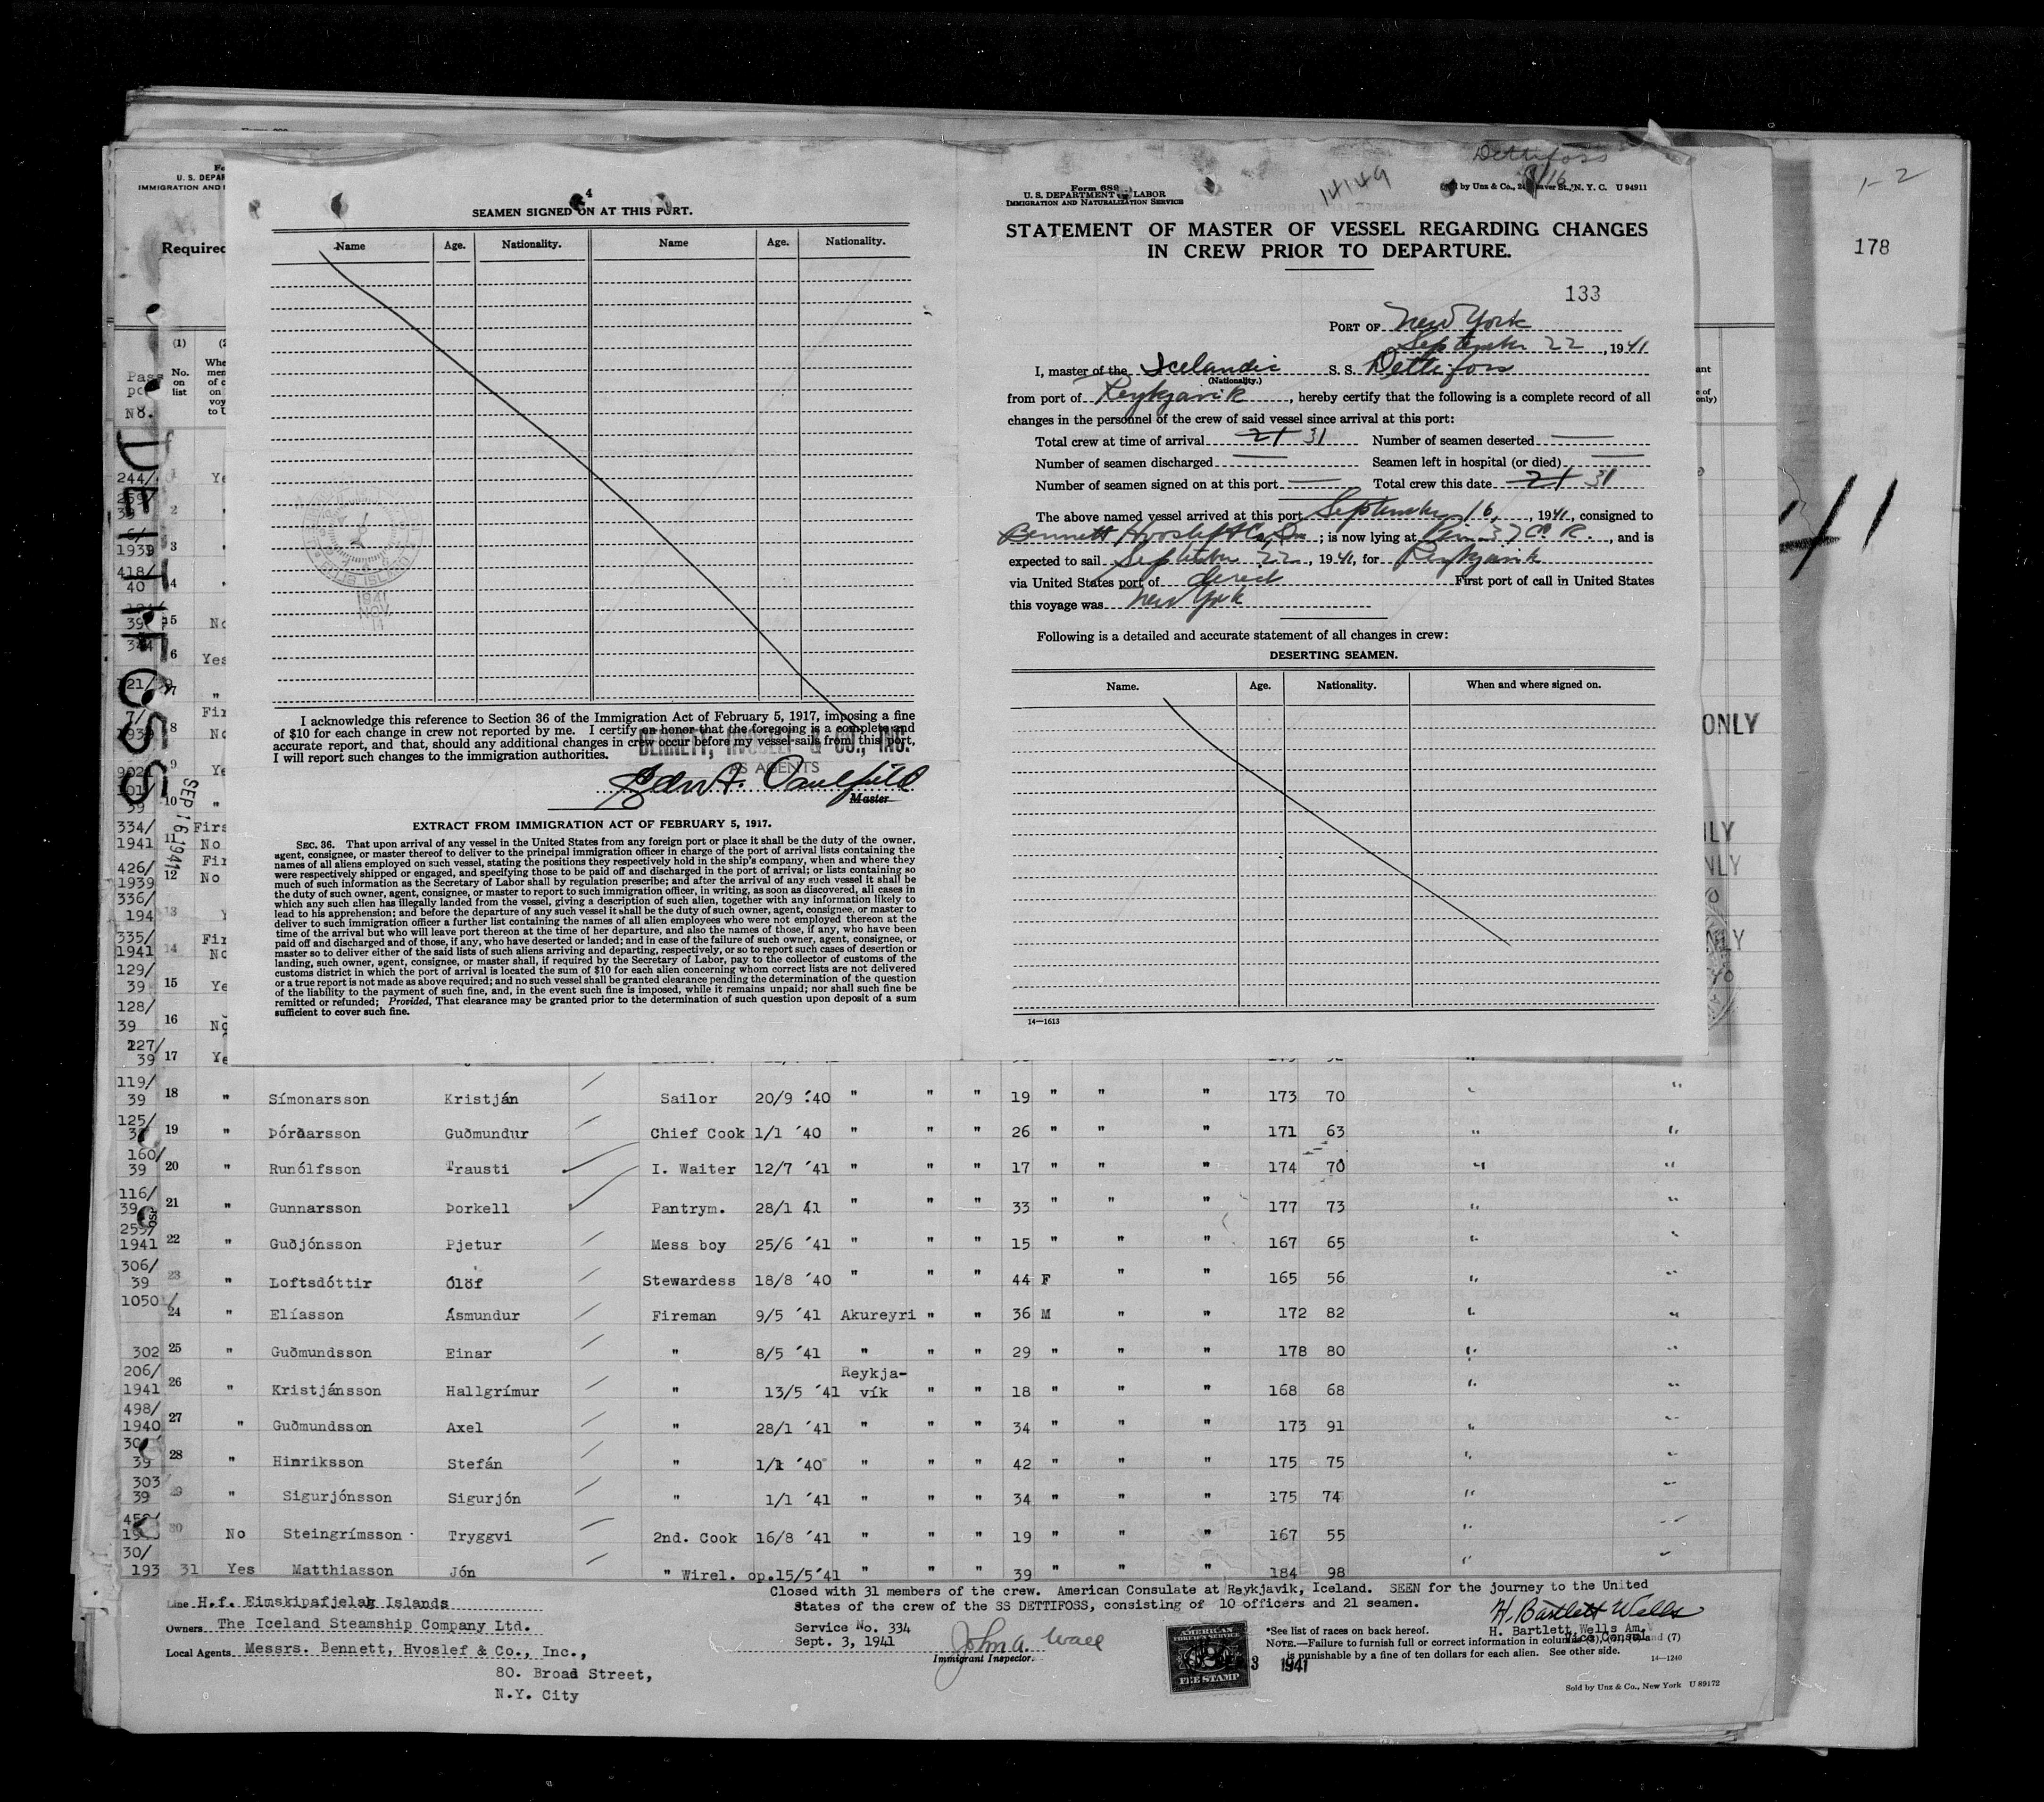 Dettifoss
9/16
14149
1-2
178
4
SEAMEN SIGNED ON AT THIS PORT.
Name Age. Nationality. Name Age. Nationality.
I acknowledge this reference to Section 36 of the Immigration Act of February 5, 1917, imposing a fine
of $10 for each change in crew not reported by me. I certify on honor that the foregoing is a complete and
accurate report, and that, should any additional changes in crew occur before my vessel sails from this port,
I will report such changes to the immigration authorities.
BENNETT, HVOSLEF & CO., INC.
AS AGENTS
Master
EXTRACT FROM IMMIGRATION ACT OF FEBRUARY 5, 1917.
SEC. 36. That upon arrival of any vessel in the United States from any foreign port or place it shall be the duty of the owner,
agent, consignee, or master thereof to deliver to the principal immigration officer in charge of the port of arrival lists containing the
names of all aliens employed on such vessel, stating the positions they respectively hold in the ship's company, when and where they
were respectively shipped or engaged, and specifying those to be paid off and discharged in the port of arrival; or lists containing so
much of such information as the Secretary of Labor shall by regulation prescribe; and after the arrival of any such vessel it shall be
the duty of such owner, agent, consignee, or master to report to such immigration officer, in writing, as soon as discovered, all cases in
which any such alien has illegally landed from the vessel, giving a description of such alien, together with any information likely to
lead to his apprehension; and before the departure of any such vessel it shall be the duty of such owner, agent, consignee, or master to
deliver to such immigration officer a further list containing the names of all alien employees who were not employed thereon at the
time of the arrival but who will leave port thereon at the time of her departure, and also the names of those, if any, who have been
paid off and discharged and of those, if any, who have deserted or landed; and in case of the failure of such owner, agent, consignee, or
master so to deliver either of the said lists of such aliens arriving and departing, respectively, or so to report such cases of desertion or
landing, such owner, agent, consignee, or master shall, if required by the Secretary of Labor, pay to the collector of customs of the
customs district in which the port of arrival is located the sum of $10 for each alien concerning whom correct lists are not delivered
or a true report is not made as above required; and no such vessel shall be granted clearance pending the determination of the question
of the liability to the payment of such fine, and, in the event such fine is imposed, while it remains unpaid; nor shall such fine be
remitted or refunded; Provided, That clearance may be granted prior to the determination of such question upon deposit of a sum
sufficient to cover such fine.
Form 689
U. S. DEPARTMENT OF LABOR
IMMIGRATION AND NATURALIZATION SERVICE
by Unz & Co., 24 Beaver St., N. Y. C. U 94911
STATEMENT OF MASTER OF VESSEL REGARDING CHANGES
IN CREW PRIOR TO DEPARTURE.
133
PORT OF New York
September 22, 1941
I, master of the Icelandic S. S. Dettifoss
(Nationality.)
from port of Reykjavik, hereby certify that the following is a complete record of all
changes in the personnel of the crew of said vessel since arrival at this port:
Total crew at time of arrival 21 31 Number of seamen deserted —
Number of seamen discharged — Seamen left in hospital (or died) —
Number of seamen signed on at this port — Total crew this date 21 31
The above named vessel arrived at this port September 16, 1941, consigned to
Bennett Hvoslef & Co, Inc; is now lying at Pier 37 E. R., and is
expected to sail September 22, 1941, for Reykjavik
via United States port of direct First port of call in United States
this voyage was New York
Following is a detailed and accurate statement of all changes in crew:
DESERTING SEAMEN.
Name. Age. Nationality. When and where signed on.
14—1613
DETTIFOSS
SEP 16 1941
Required
(1)
No. on list
Pass
No.
ONLY
119/39 18 " Símonarsson Kristján Sailor 20/9 '40 " " " 19 " " " 173 70 " "
125/ 19 " Þórðarsson Guðmundur Chief Cook 1/1 '40 " " " 26 " " " 171 63 " "
160/39 20 " Runólfsson Trausti I. Waiter 12/7 '41 " " " 17 " " " 174 70 " "
116/39 21 " Gunnarsson Þorkell Pantrym. 28/1 41 " " " 33 " " " 177 73 " "
255/1941 22 " Guðjónsson Pjetur Mess boy 25/6 '41 " " " 15 " " " 167 65 " "
306/39 23 " Loftsdóttir Ólöf Stewardess 18/8 '40 " " " 44 F " " 165 56 " "
1050/ 24 " Elíasson Ásmundur Fireman 9/5 '41 Akureyri " " 36 M " " 172 82 " "
302 25 " Guðmundsson Einar " 8/5 '41 " " " 29 " " " 178 80 " "
206/1941 26 " Kristjánsson Hallgrímur " 13/5 '41 Reykja-vík " " 18 " " " 168 68 " "
498/1940 27 " Guðmundsson Axel " 28/1 '41 " " " 34 " " " 173 91 " "
39 28 " Hinriksson Stefán " 1/1 '40 " " " 42 " " " 175 75 " "
303/39 29 " Sigurjónsson Sigurjón " 1/1 '41 " " " 34 " " " 175 74 " "
30 No Steingrímsson Tryggvi 2nd. Cook 16/8 '41 " " " 19 " " " 167 55 " "
30/193 31 Yes Matthiasson Jón " Wirel. op. 15/5 '41 " " " 39 " " " 184 98 " "
Closed with 31 members of the crew. American Consulate at Reykjavik, Iceland. SEEN for the journey to the United
States of the crew of the SS DETTIFOSS, consisting of 10 officers and 21 seamen.
Line H.f. Eimskipafjelag Islands
Owners The Iceland Steamship Company Ltd.
Local Agents Messrs. Bennett, Hvoslef & Co., Inc.,
80. Broad Street,
N.Y. City
Service No. 334
Sept. 3, 1941
John A. Wall
Immigrant Inspector.
AMERICAN
FOREIGN SERVICE
2
FEE STAMP
3 1941
H. Bartlett Wells
H. Bartlett Wells Am.
Vice Consul
*See list of races on back hereof.
NOTE.—Failure to furnish full or correct information in columns and (7)
is punishable by a fine of ten dollars for each alien. See other side.
14—1240
Sold by Unz & Co., New York U 89172